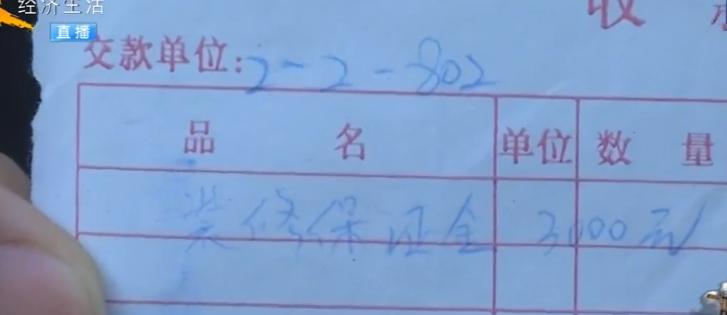 经济生活
直播
收
交款单位:2-2-802
品名 单位 数量
装修保证金 3000元